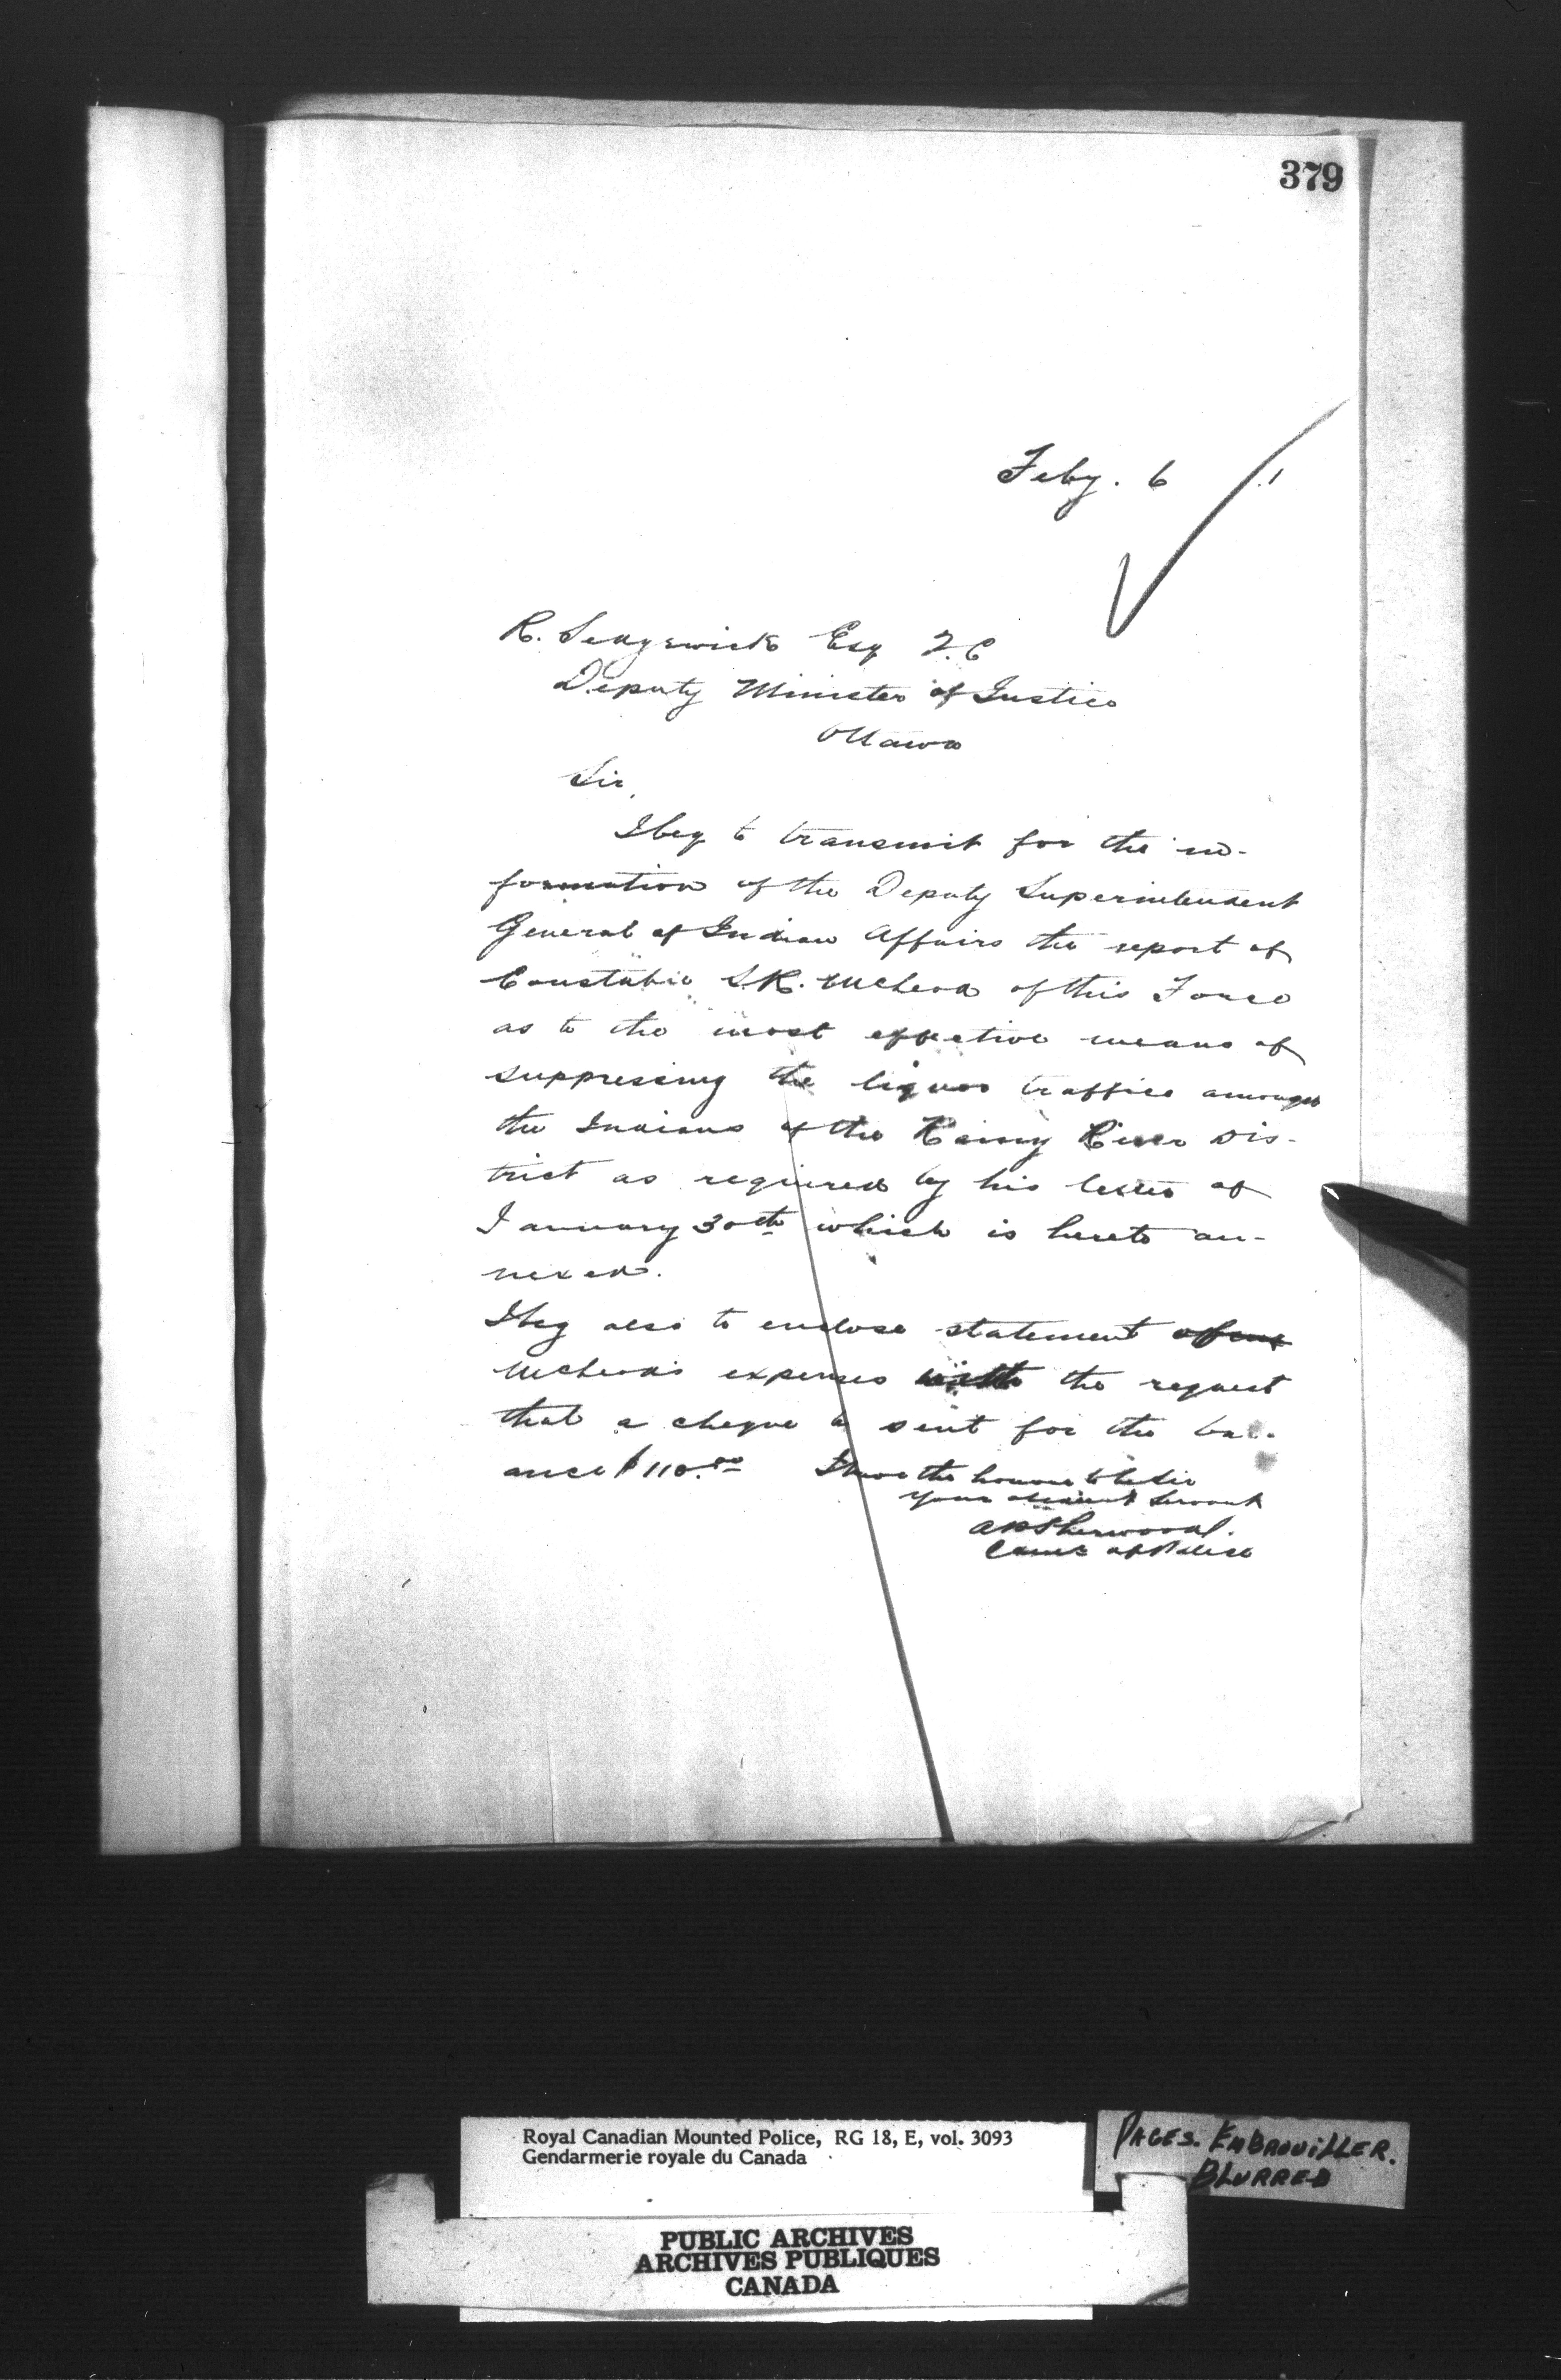 379
Feby. 6 1
R. Sedgewick Esq Q.C
Deputy Minister of Justice
Ottawa
Sir,
I beg to transmit for the in-
formation of the Deputy Superintendent
General of Indian Affairs the report of
Constable of this Force
as to the most effective means of
suppressing the liquor traffice amongst
the Indians of the Rainy River Dis-
trict as required by his letter of
January 30th which is hereto an-
nexed.
I beg also to enclose statement
expenses with the request
that a cheque be sent for the bal-
ance $110.00 I have the honour to be Sir
your obedient Servant
A P Sherwood.
Comr of Police
Royal Canadian Mounted Police, RG 18, E, vol. 3093
Gendarmerie royale du Canada
PAGES. EMBROUILLER.
BLURRED
PUBLIC ARCHIVES
ARCHIVES PUBLIQUES
CANADA